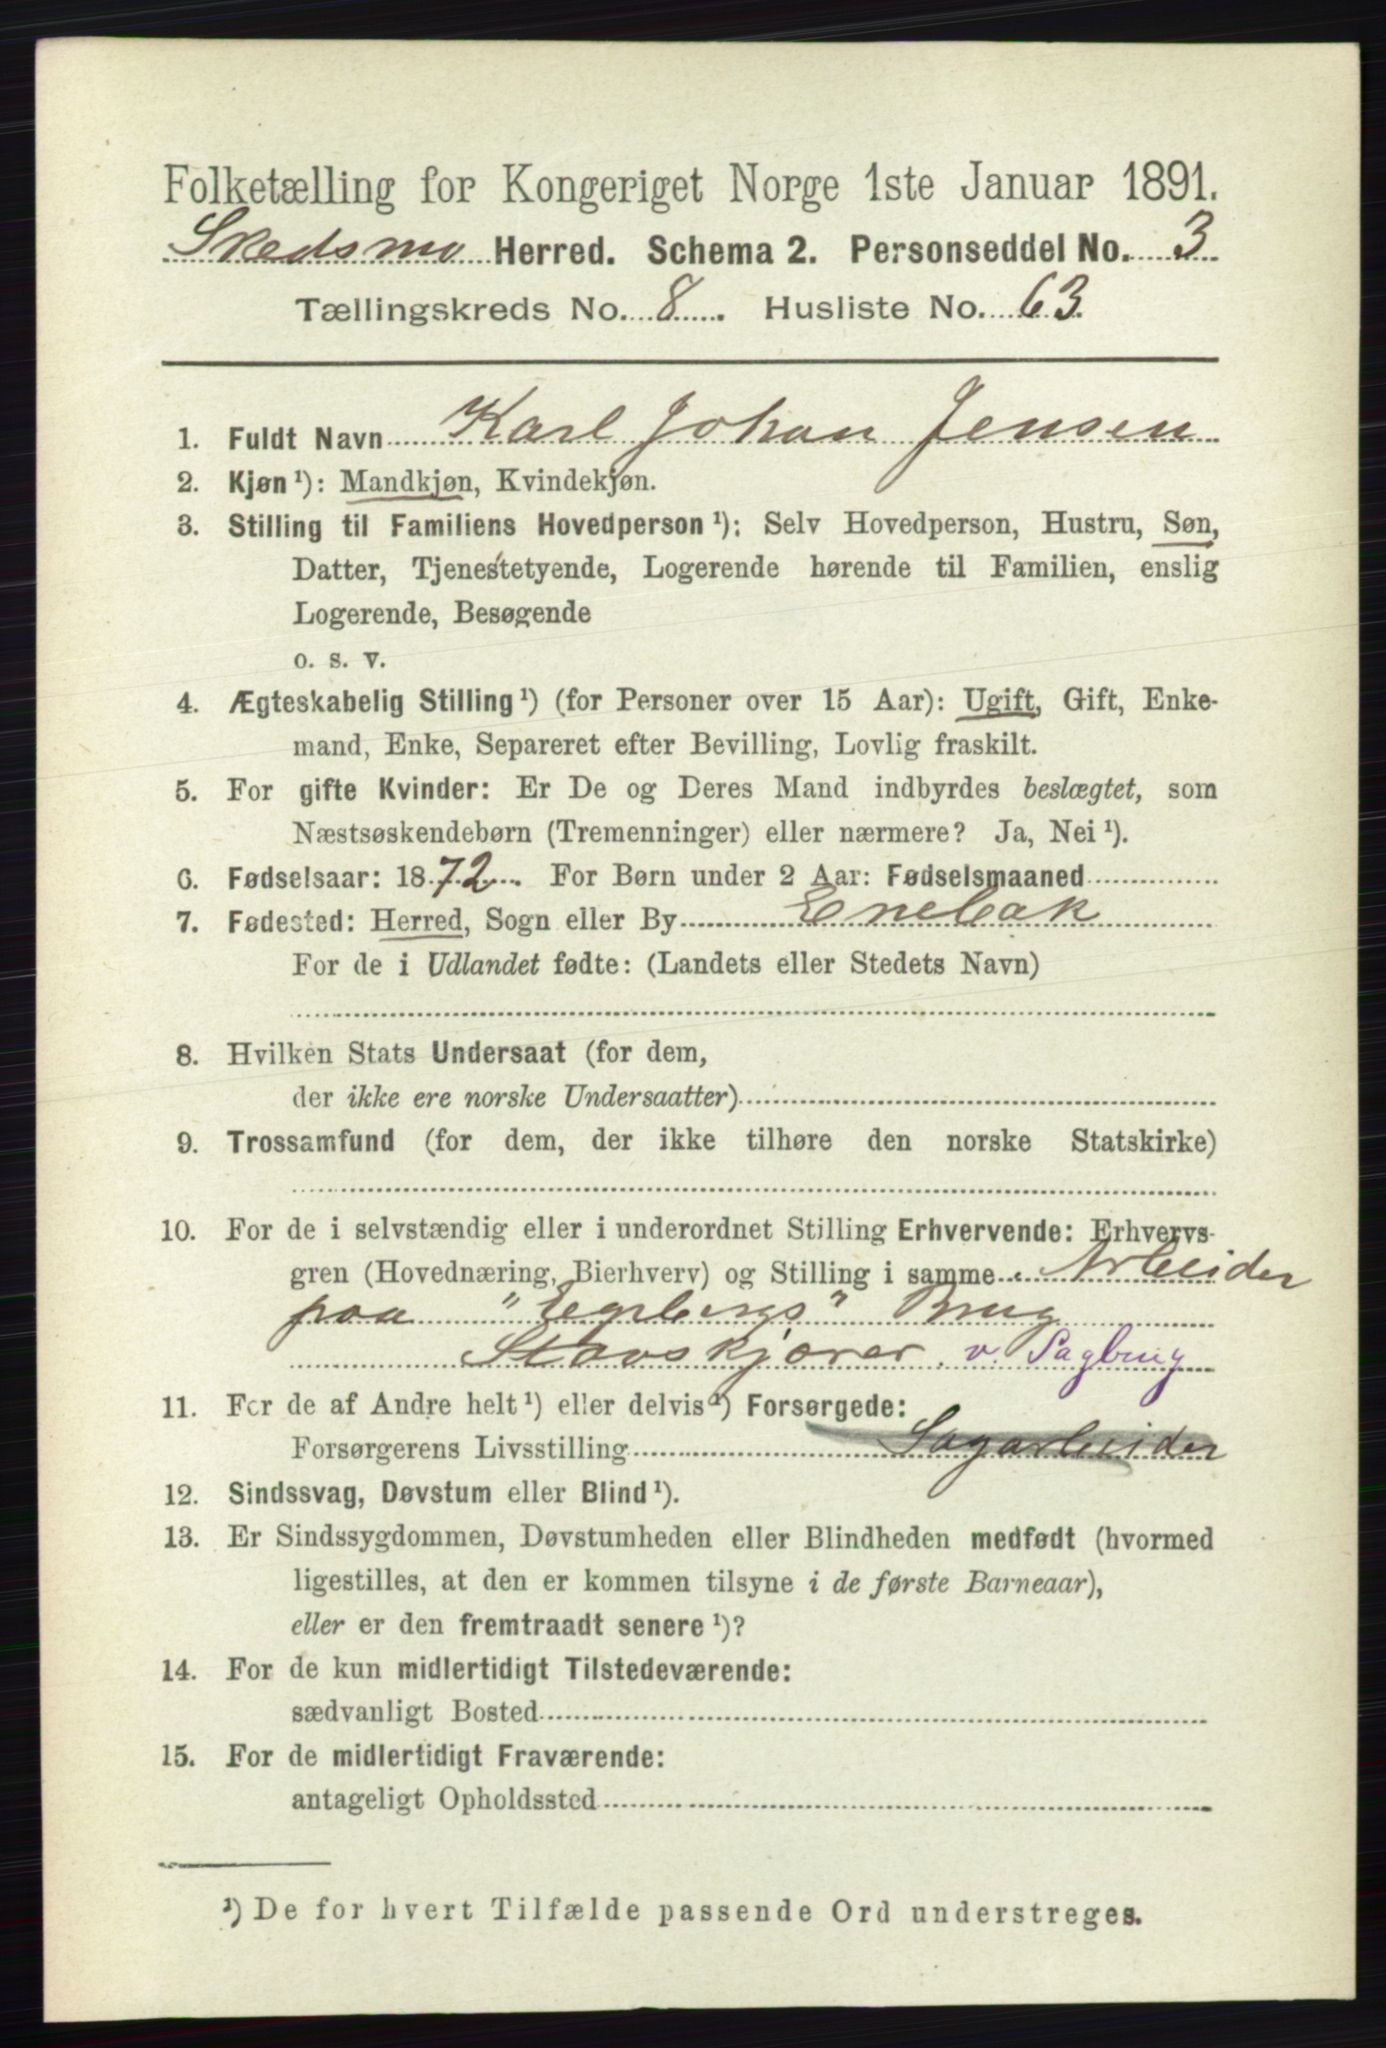 Folketælling for Kongeriget Norge 1ste Januar 1891.
Skedsmo Herred. Schema 2. Personseddel No. 3
Tællingskreds No. 8. Husliste No. 63
1. Fuldt Navn Karl Johan Jensen
2. Kjøn ¹): Mandkjøn, Kvindekjøn.
3. Stilling til Familiens Hovedperson ¹): Selv Hovedperson, Hustru, Søn,
Datter, Tjenestetyende, Logerende hørende til Familien, enslig
Logerende, Besøgende
o. s. v.
4. Ægteskabelig Stilling ¹) (for Personer over 15 Aar): Ugift, Gift, Enke-
mand, Enke, Separeret efter Bevilling, Lovlig fraskilt.
5. For gifte Kvinder: Er De og Deres Mand indbyrdes beslægtet, som
Næstsøskendebørn (Tremenninger) eller nærmere? Ja, Nei ¹).
6. Fødselsaar: 1872. For Børn under 2 Aar: Fødselsmaaned
7. Fødested: Herred, Sogn eller By Enebak
For de i Udlandet fødte: (Landets eller Stedets Navn)
8. Hvilken Stats Undersaat (for dem,
der ikke ere norske Undersaatter)
9. Trossamfund (for dem, der ikke tilhøre den norske Statskirke)
10. For de i selvstændig eller i underordnet Stilling Erhvervende: Erhvervs-
gren (Hovednæring, Bierhverv) og Stilling i samme Arbeider
paa "Egebergs" Brug
Stavskjærer. v. Sagbrug
11. For de af Andre helt ¹) eller delvis ¹) Forsørgede:
Forsørgerens Livsstilling Sagarbeider
12. Sindssvag, Døvstum eller Blind ¹).
13. Er Sindssygdommen, Døvstumheden eller Blindheden medfødt (hvormed
ligestilles, at den er kommen tilsyne i de første Barneaar),
eller er den fremtraadt senere ¹)?
14. For de kun midlertidigt Tilstedeværende:
sædvanligt Bosted
15. For de midlertidigt Fraværende:
antageligt Opholdssted
¹) De for hvert Tilfælde passende Ord understreges.